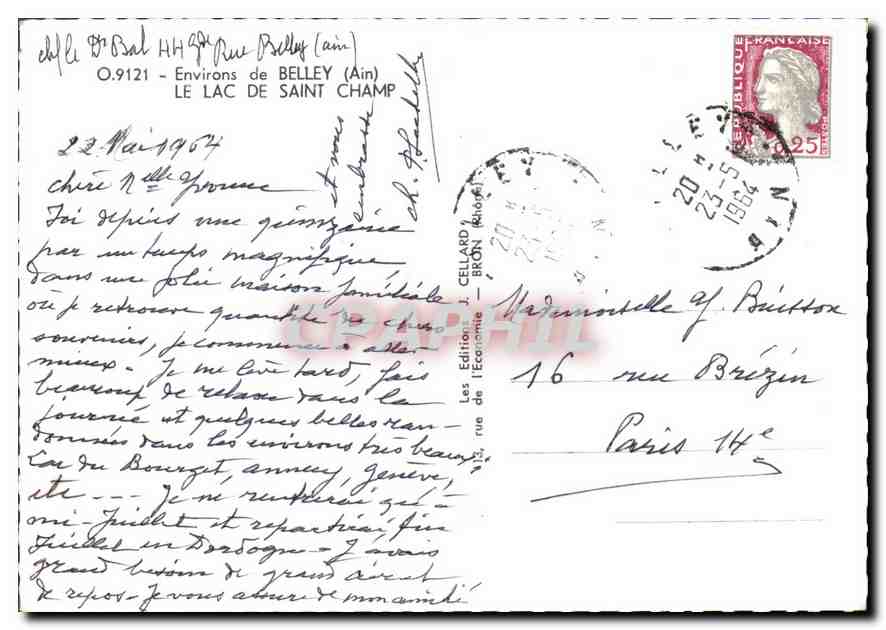 chez le Dr Bal 44 gde Rue Belley (ain)
O.9121 - Environs de BELLEY (Ain)
LE LAC DE SAINT CHAMP
22 Mai 1964
chère Melle Yvonne
J'ai depuis une quinzaine
par un temps magnifique
dans une jolie maison familiale
où je retrouve quantité de chers
souvenirs, je commence à aller
mieux - Je me lève tard, fais
beaucoup de relaxe dans la
journée et quelques belles ran-
données dans les environs très beaux
Lac du Bourget, annecy, Genève,
etc --- Je ne rentrerai qu'à
mi-Juillet et repartirai fin
Juillet en Dordogne - J'avais
grand besoin de grand air et
de repos - Je vous assure de mon amitié
et vous
embrasse
Les Editions J. CELLARD
13, rue de l'Economie - BRON (Rhône)
CPAPHIL
REPUBLIQUE FRANÇAISE
0,25
POSTES
BELLEY
AIN
20 H
23-5
1964
20 H
23-5
Mademoiselle Y. Buisson
16 rue Brézin
Paris 14e